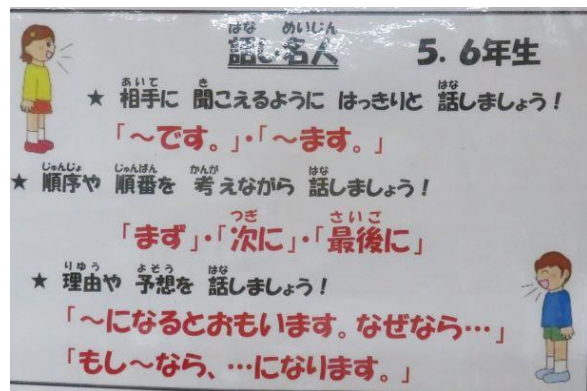 話し名人 5. 6年生
★ 相手に 聞こえるように はっきりと 話しましょう！
「～です。」・「～ます。」
★ 順序や 順番を 考えながら 話しましょう！
「まず」・「次に」・「最後に」
★ 理由や 予想を 話しましょう！
「～になるとおもいます。なぜなら…」
「もし～なら、…になります。」